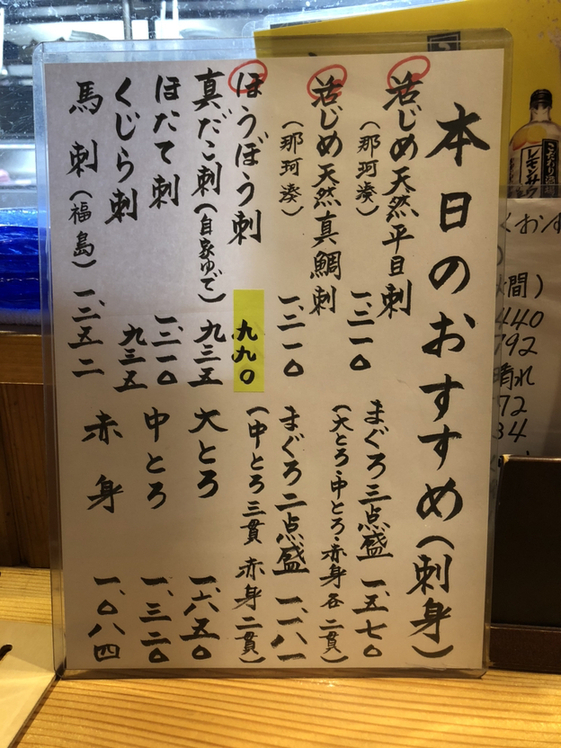 本日のおすすめ(刺身)
活じめ天然平目刺
(那珂湊)
一、三一〇
活じめ天然真鯛刺
(那珂湊)
一、三一〇
ほうぼう刺
九九〇
真だこ刺(自家ゆで)
九三五
ほたて刺
一、三一〇
くじら刺
九三五
馬刺(福島)
一、三五二
まぐろ三点盛
一、五七〇
(大とろ・中とろ・赤身各二貫)
まぐろ二点盛
一、一八一
(中とろ三貫 赤身二貫)
大とろ
一、六五〇
中とろ
一、三二〇
赤身
一、〇八四
こだわり酒場
レモンサワー
くおす
間)
440
792
晴れ
72
34